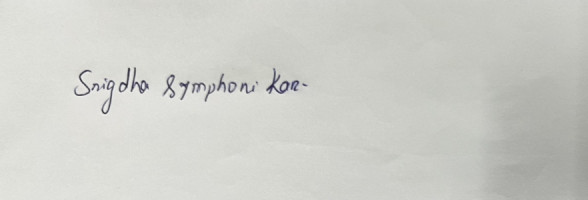 Snigdha Symphoni Kar.